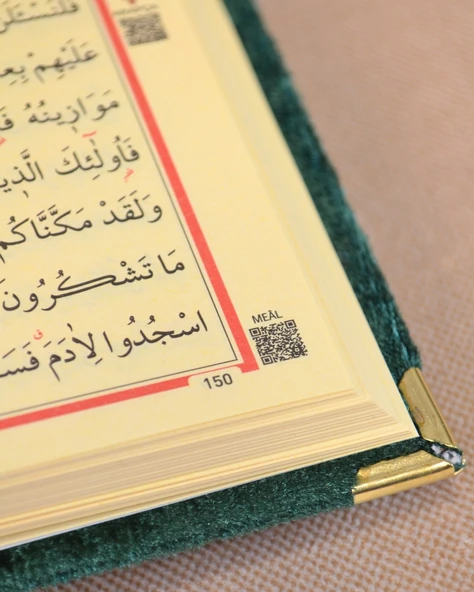 فَلَنَسْـَٔلَنَّ
عَلَيْهِمْ
مَوَازِينُهُ
فَاُولٰٓئِكَ الَّذِينَ
وَلَقَدْ مَكَّنَّاكُمْ
مَا تَشْكُرُونَ
اسْجُدُوا لِاٰدَمَ
MEÂL
150